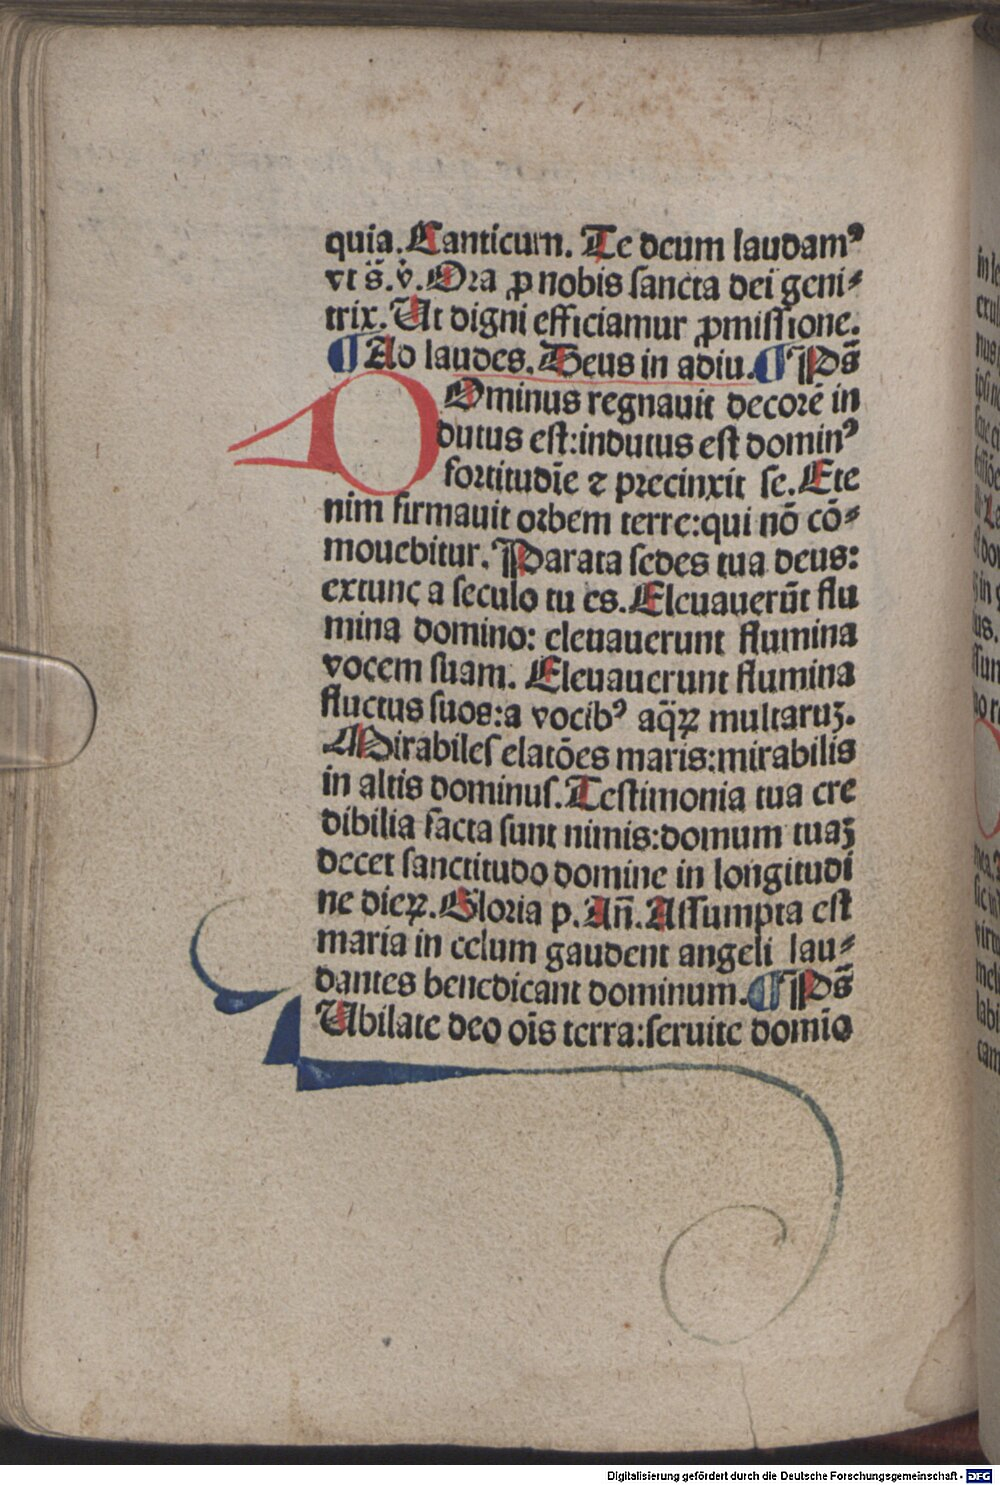 quia. Canticum. Te deum laudamꝰ
vt s̄. v̇. Ora ꝓ nobis sancta dei geni⸗
trix. Ut digni efficiamur ꝓmissione.
¶ Ad laudes. Deus in adiu. ¶ Ps̄
DOminus regnauit decorē in
dutus est: indutus est dominꝰ
fortitudīe ⁊ precinxit se. Ete
nim firmauit orbem terre: qui nō cō⸗
mouebitur. Parata sedes tua deus:
extunc a seculo tu es. Eleuauerūt flu
mina domino: eleuauerunt flumina
vocem suam. Eleuauerunt flumina
fluctus suos: a vocibꝰ aq̄ꝝ multaruꝫ.
Mirabiles elatōes maris: mirabilis
in altis dominus. Testimonia tua cre
dibilia facta sunt nimis: domum tuaꝫ
decet sanctitudo domine in longitudi
ne dieꝝ. Gloria p. An̄. Assumpta est
maria in celum gaudent angeli lau⸗
dantes benedicant dominum. ¶ Ps̄
Ubilate deo oīs terra: seruite domīo
Digitalisierung gefördert durch die Deutsche Forschungsgemeinschaft - DFG